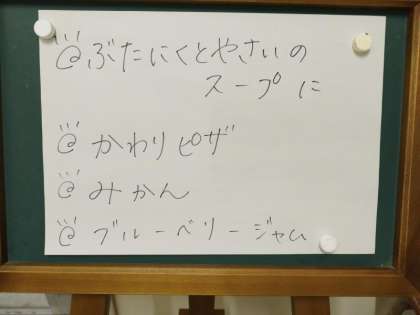 @ぶたにくとやさいの
スープに
@かわりピザ
@みかん
@ブルーベリージャム